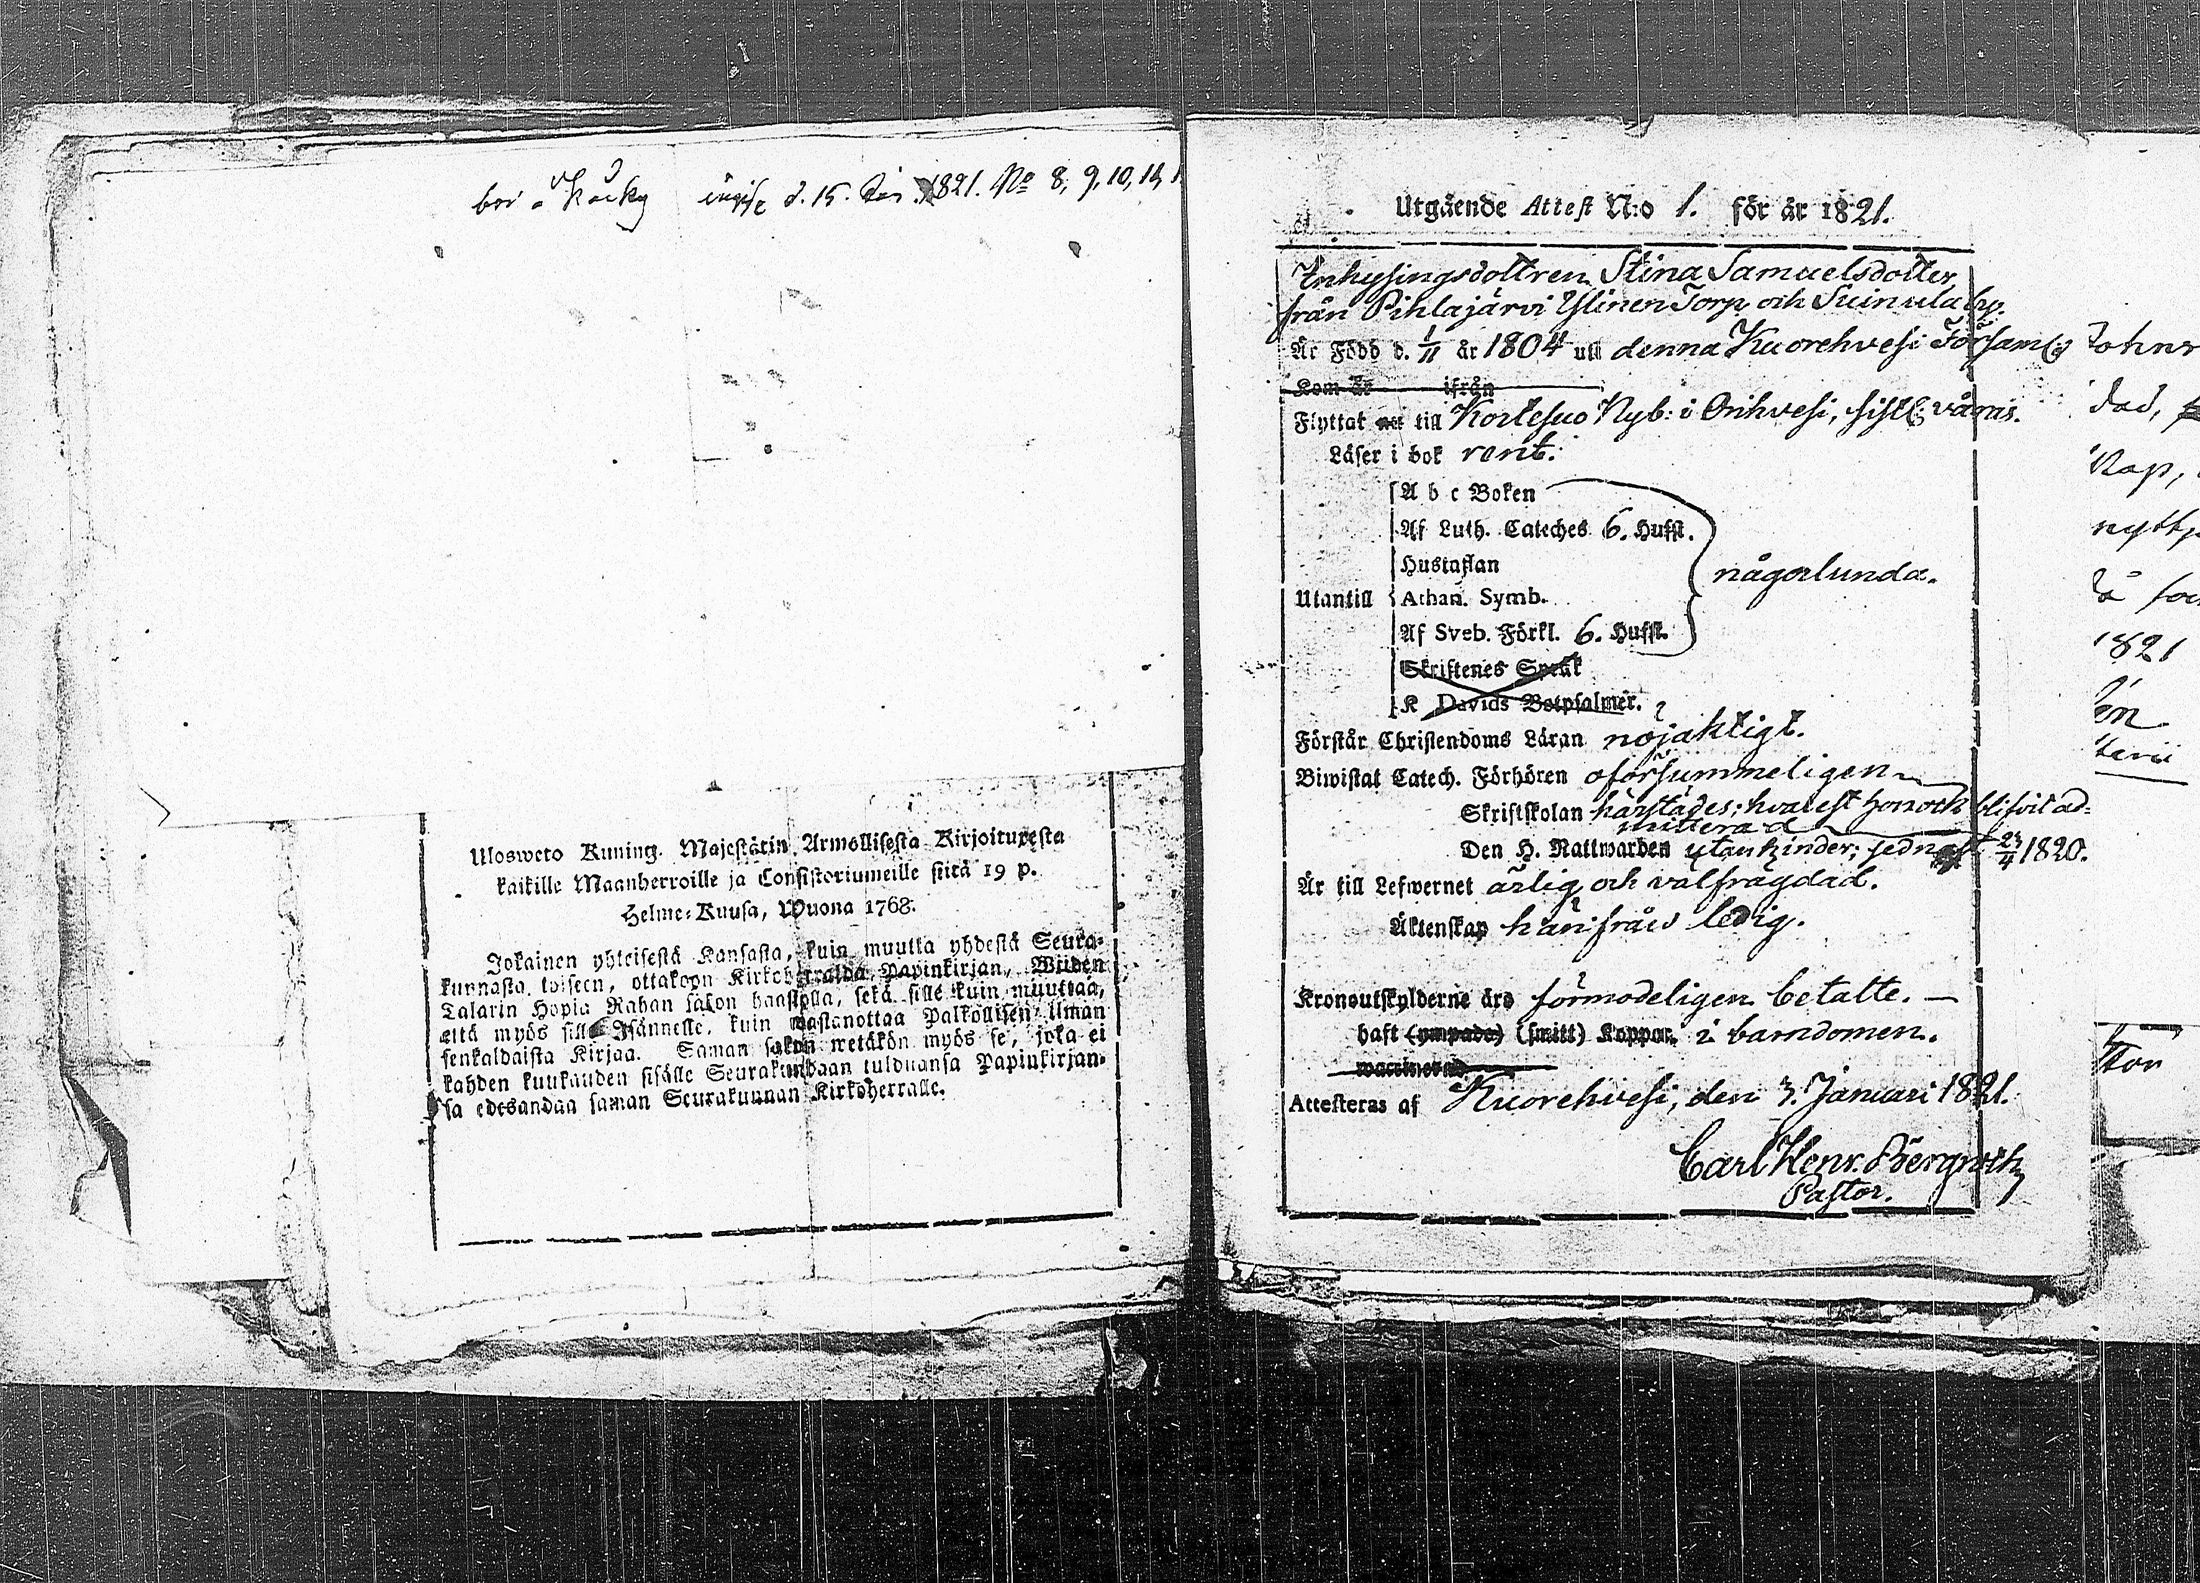 1821. No 8, 9, 10, 11,
Ulosweto Kuning. Majestätin Armollisesta Kirjoituxesta
kaikille Maanherroille ja Consistoriumeille siitä 19 p.
Helme-Kuusa, Wuona 1768.
Jokainen yhteisestä Kansasta, kuin muutta yhdestä Seura-
kunnasta toiseen, ottakoon Kirkoherralda Papinkirjan, Wiiden
Talarin Hopia Rahan sakon haastolla, sekä sille kuin muuttaa,
että myös sille Isännelle, kuin wastanottaa Palkollisen ilman
senkaldaista Kirjaa. Saman sakon wetäkön myös se, joka ei
kahden kuukauden sisälle Seurakundaan tulduansa Papinkirjan-
sa edesandaa saman Seurakunnan Kirkoherralle.
Utgående Attest N:o 1. för år 1821.
Inhysingsdottren Stina Samuelsdotter
från Pihlajärvi Ylinen Torp och Suinula by.
Är Född d. 1/11 år 1804 uti denna Kuorehvesi Församl:g
Kom år ifrån
Flyttat nu till Kortesuo Nyb: i Orihvesi, sistl: våras.
Läser i bok rent.
A b c Boken
Af Luth. Cateches 6. Hufst.
Hustaflan
någorlunda.
Utantill Athan. Symb.
Af Sveb. Förkl. 6. Hufst.
Skriftenes Språk
K Davids Botpsalmer.
Förstår Christendoms Läran nöjaktigt.
Biwistat Catech. Förhören oförsummeligen
Skriftskolan härstädes; hvarest hon och blifvit ad-
mitterad
Den H. Nattwarden utan hinder; sednast 23/4 1820.
Är till Lefwernet ärlig och välfrägdad.
Äktenskap härifrån ledig.
Kronoutskylderne äro förmodeligen betalte.
haft (ympade) (smitt) Koppor i barndomen.
waccinerad
Attesteras af Kuorehvesi, den 3. Januari 1821.
Carl Henr. Bergroth
Pastor.
1821